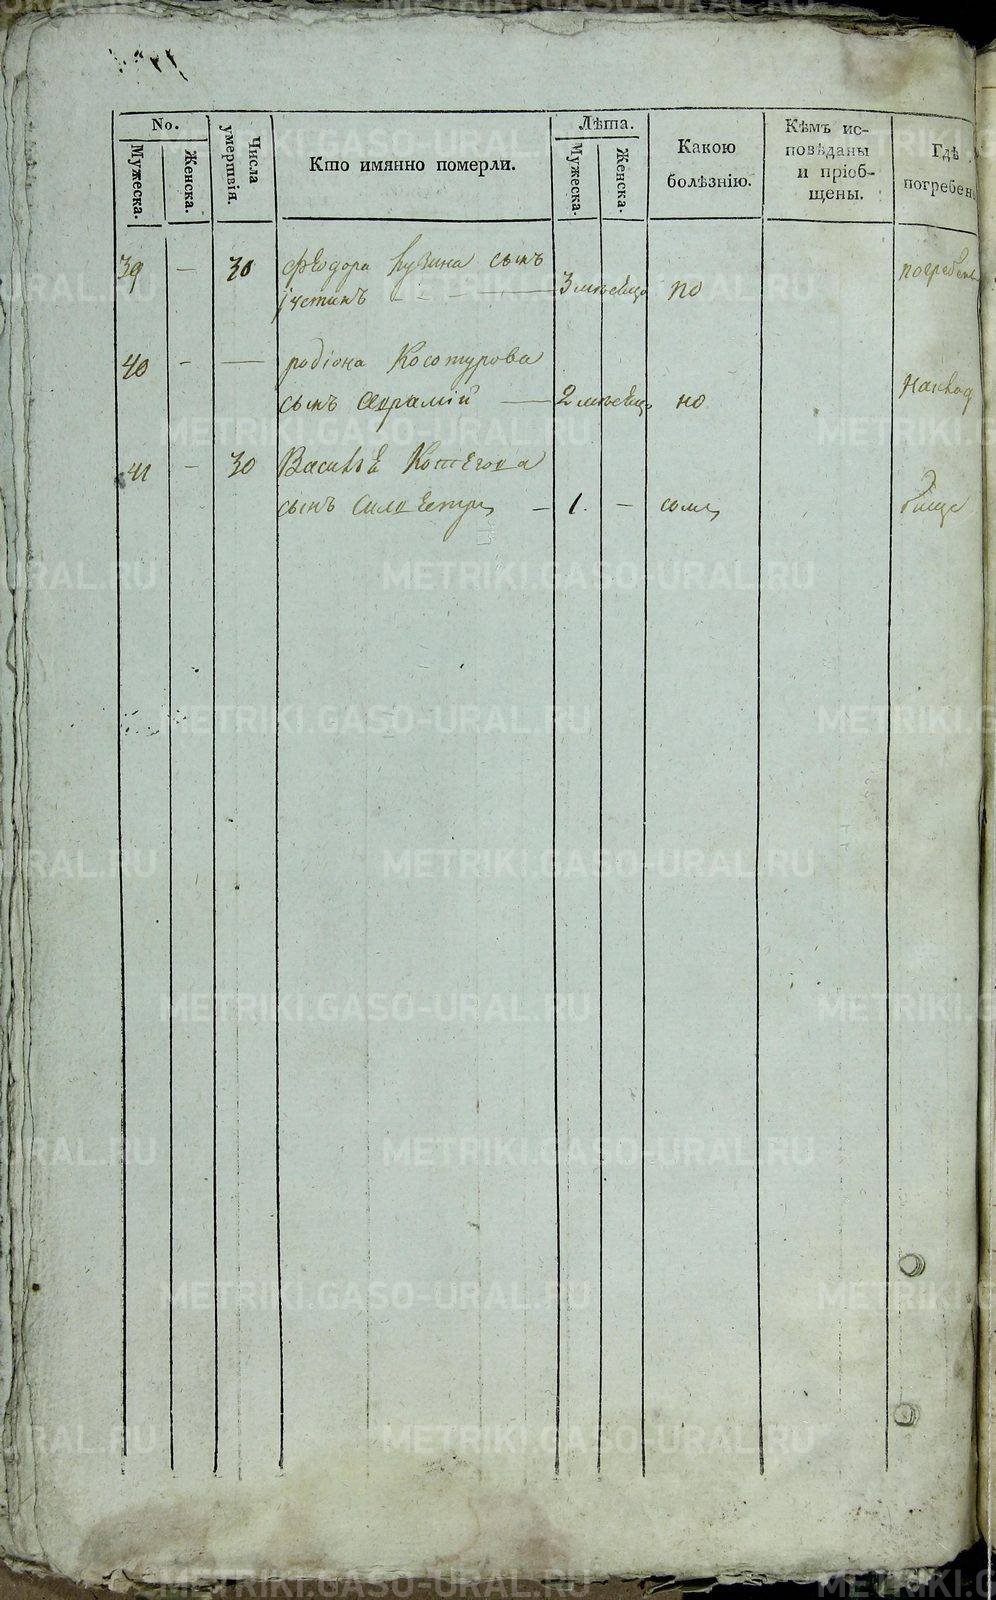 No.
Мужеска.
Женска.
Числа
умертвія.
Кто имянно померли.
Лѣта.
Мужеска.
Женска.
Какою
болѣзнію.
Кѣмъ ис-
повѣданы
и пріоб-
щены.
Гдѣ
погребен
39 — 30 Феодора Кузина сынъ
Устинъ — 3 мѣсецо по
погребен
40 — — родіона Косотурова
сынъ — 2 мѣсецо но
на клад
41 — 30 Василья
сынъ — 1. —
бище
METRIKI.GASO-URAL.RU